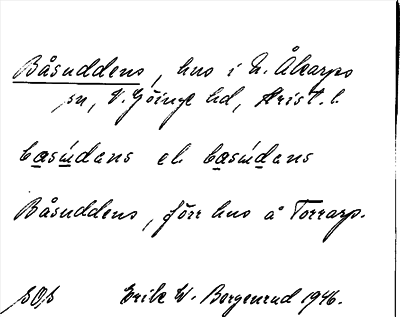 Båsuddens, hus i N. Åkarps
sn, V. Göinge hd, Krist. l.
bæsu̇́dans el. bæsu̇́dans
Båsuddens, förr hus å Torrarp.
SOS Erik W. Bergenrud 1946.